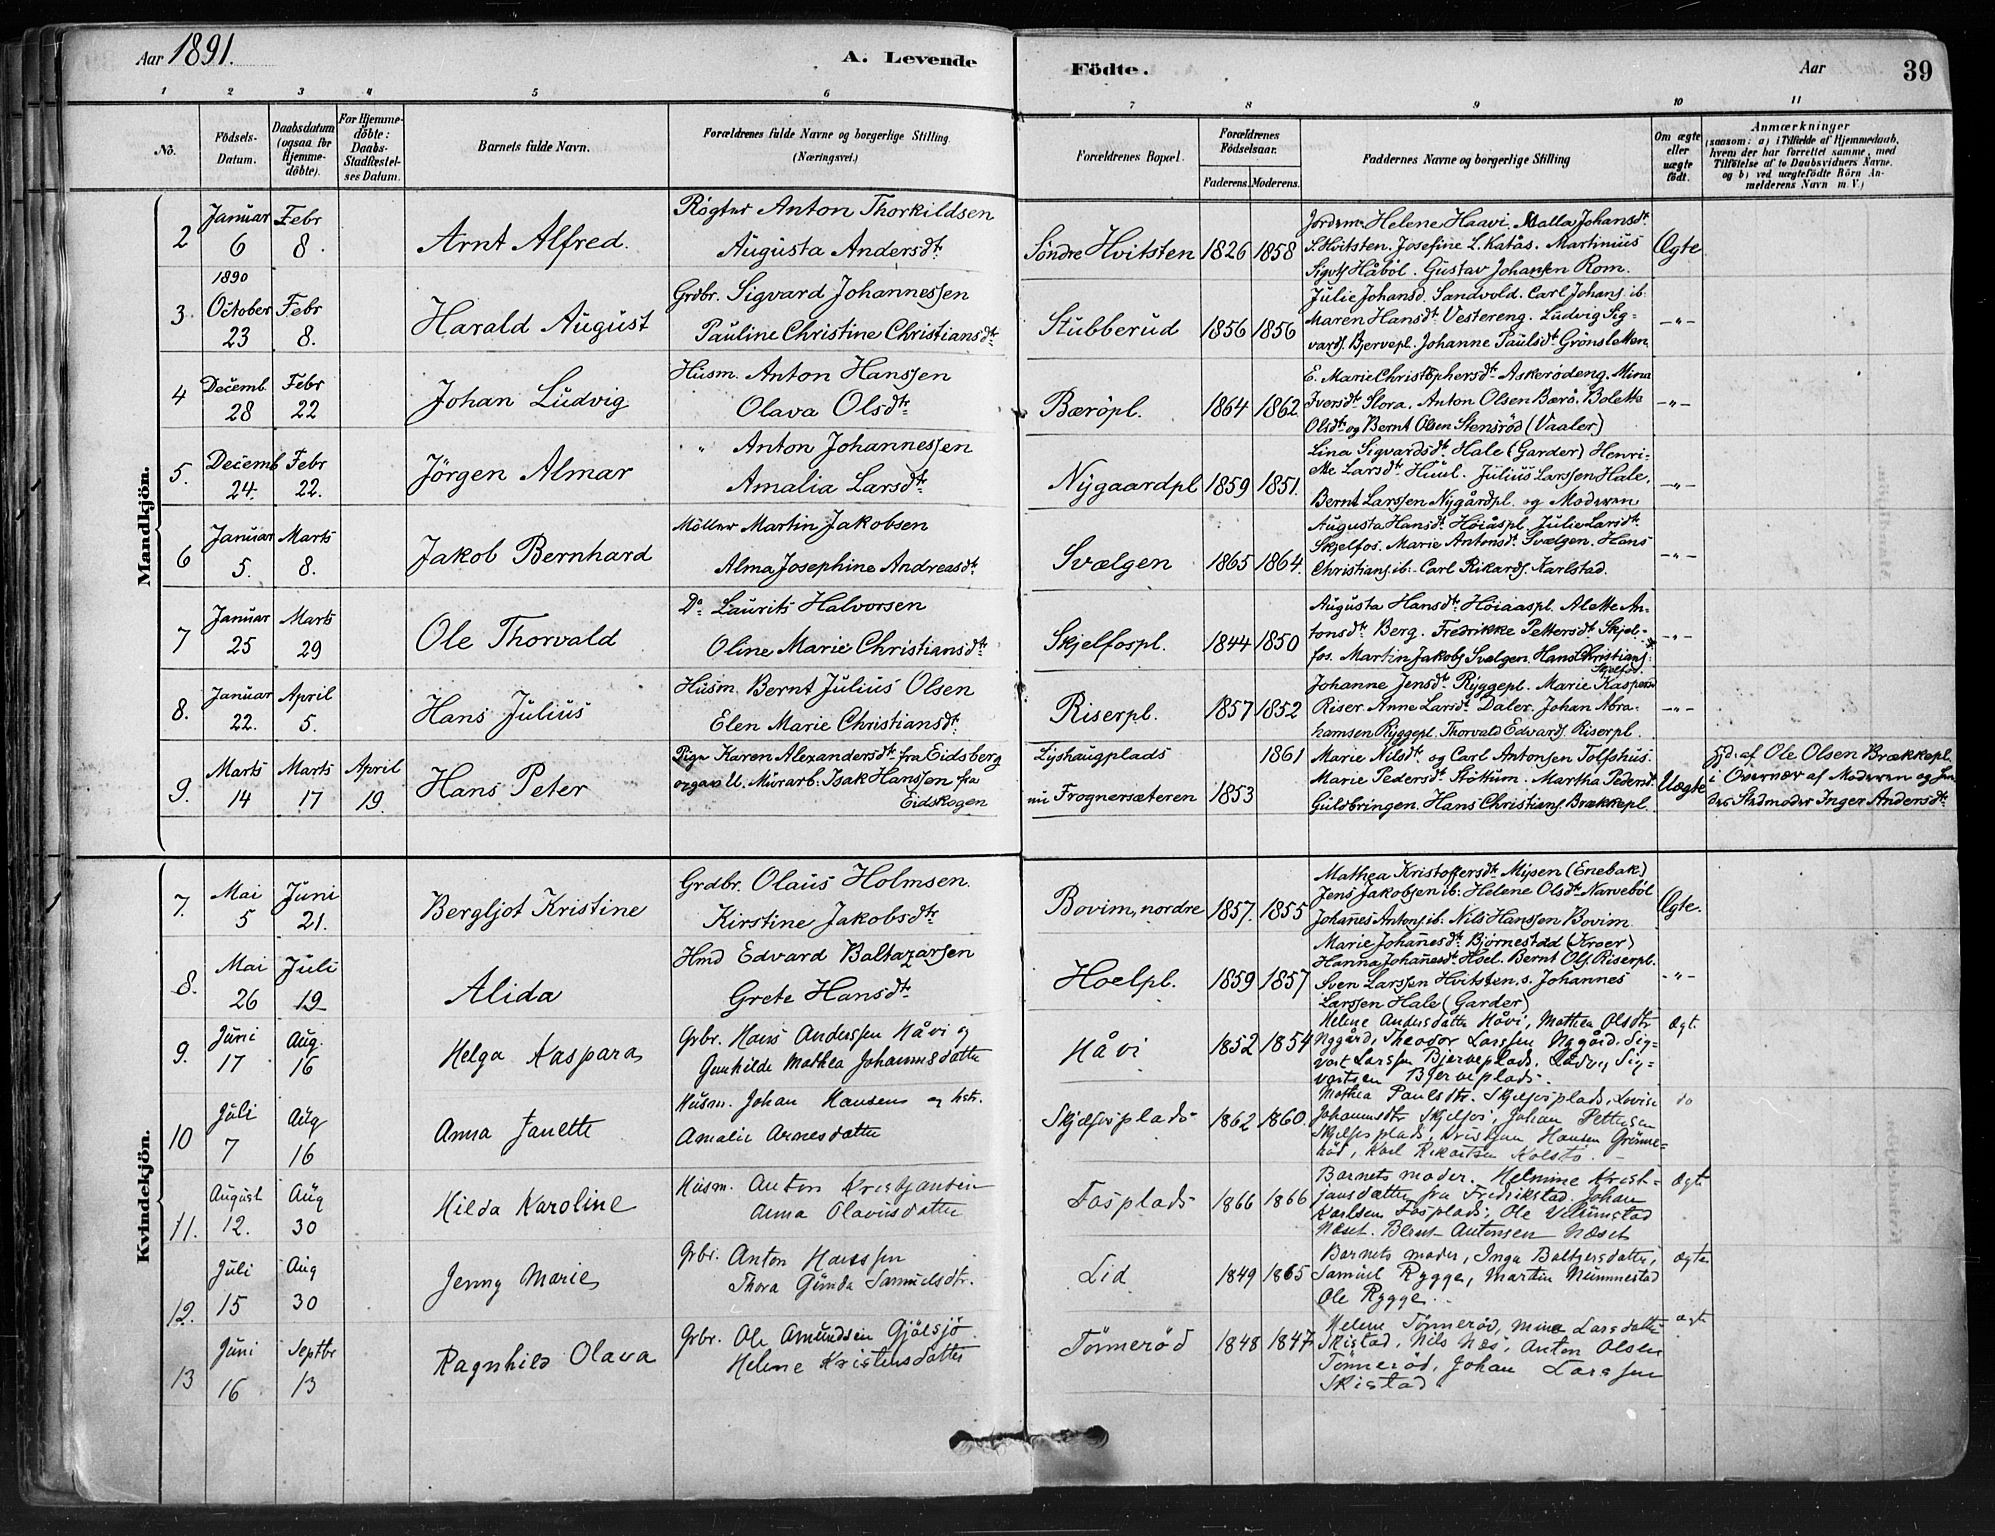 Aar 1891.
A. Levende
Födte.
Aar
39
1 2 3 4 5 6 7 8 9 10 11
No.
Födsels-Datum.
Daabsdatum (ogsaa for Hjemme-döbte).
For Hjemme-döbte: Daabs-Stadfæstel-ses Datum.
Barnets fulde Navn.
Forældrenes fulde Navne og borgerlige Stilling.
(Næringsvei.)
Forældrenes Bopæl.
Forældrenes Födselsaar.
Faderens. Moderens.
Faddernes Navne og borgerlige Stilling
Om ægte eller uægte födt.
Anmærkninger
(saasom: a) i Tilfælde af Hjemmedaab, hvem der har forrettet samme, med Tilföielse af to Daabsvidners Navne, og b) ved uægtefödte Börn An-melderens Navn m. V.)
Mandkjön.
2 Januar 6 Febr 8. Arnt Alfred.
Røgter Anton Thorkildsen
Augusta Andersdtr
Søndre Hvitsten 1826 1858
Jordem. Helene Haavi. Malla Johansdtr
S. Hvitsten. Josefine L. Katås. Martinius
Sigvs Håböl. Gustav Johansen Rom.
Ægte
3. 1890 October 23 Febr 8. Harald August
Grdbr. Sigvard Johannessen
Pauline Christine Christiansdtr
Stubberud 1856 1856
Julie Johansd. Sandvold. Carl Johans. ib.
Maren Hansdtr Vestereng. Ludvig Sig-
vards. Bjervepl. Johanne Paulsdtr Grønsletten
-"-
4 Decemb. 28 Febr 22 Johan Ludvig
Husm. Anton Hanssen
Olava Olsdtr
Bæröpl. 1864 1862.
E. Marie Christophersdtr Askerødeng. Mina
Iversdtr Slora. Anton Olsen Bærö. Bolette
Olsdtr og Bernt Olsen Stensröd (Vaaler)
-"-
5. Decemb 24. Febr 22. Jörgen Almar
" Anton Johannessen
Amalia Larsdtr
Nygaardpl 1859 1851.
Lina Sigvardsdtr Hale (Garder) Henri-
ette Larsdtr Huul. Julius Larssen Hale,
Bernt Larssen Nygårdpl. og Moderen
-"-
6 Januar 5. Marts 8. Jakob Bernhard
Möller Martin Jakobsen
Alma Josephine Andreasdtr
Svælgen 1865 1864.
Augusta Hansdtr Høiåspl. Julie Larsdtr
Skjelfos. Marie Antonsdtr Svælgen. Hans
Christians. ib. Carl Rikards. Karlstad.
-"-
7 Januar 25 Marts 29 Ole Thorvald
Do Laurits Halvorsen
Oline Marie Christiansdtr
Skjelfospl. 1844 1850
Augusta Hansdtr Höiaaspl. Alette An-
tonsdtr Berg. Fredrikke Pettersdtr Skjel-
fos. Martin Jakobs Svælgen. Hans Christians.
-"-
8. Januar 22. April 5. Hans Julius
Husm. Bernt Julius Olsen
Elen Marie Christiansdtr
Riserpl. 1857 1852
Johanne Jensdtr Ryggepl. Marie Kaspers
Riser. Anne Larsdtr Daler. Johan Abra-
hamsen Ryggepl. Thorvald Edvards. Riserpl.
-"-
9. Marts 14 Marts 17 April 19. Hans Peter
Pige Karen Alexandersdtr fra Eidsberg
og Murarb. Isak Hanssen fra
Eidskogen
Lyshaugplads 1861
nu Frognersæteren 1853
Marie Nilsdtr og Carl Antonsen Tolfshus.
Marie Pedersdtr Støttum. Martha Pedersdtr
Guldbringen. Hans Christians Brækkepl.
Uægte
Hjd. af Ole Olsen Brækkepl.
i Overvær af Moderen og
Stedmoder Inger Andersdtr
Kvindekjön.
7. Mai 5 Juni 21. Bergljot Kristine
Grdbr. Olaus Holmsen.
Kirstine Jakobsdtr
Bovim, nordre 1857. 1855
Mathea Kristoffersdtr Mysen (Enebak)
Jens Jakobsen ib: Helene Olsdtr Narveböl
Johannes Antons. ib: Nils Hanssen Bovim.
Ægte.
8. Mai 26 Juli 19 Alida
Hmd Edvard Baltazarsen
Grete Hansdtr
Hoelpl. 1859 1857
Marie Johannesdtr Bjørnestad (Kroer)
Hanna Johannesdtr Hoel. Bernt Ols. Riserpl.
Sven Larssen Hvitsten, s. Johannes
Larssen Hale (Garder)
-"-
9. Juni 17 Aug. 16 Helga Kaspara
Grbr. Hans Anderssen Håvi og
Gunhilde Mathea Johannesdatter
Håvi 1852 1854
Helene Andersdatter Håvi, Mathea Olsdtr
Nygård, Theodor Larssen Nygård. Sig-
vart Larssen Bjerveplads. Ludvig Sig-
vartsen Bjerveplads.
Ægt.
10 Juli 7 Aug 16 Anna Janette
Husm. Johan Hansen og hstr.
Amalie Arnesdatter
Skjelfosplads 1862 1860.
Mathea Paulsdtr. Skjelfosplads, Lovise
Johannesdtr Skjelfos, Johan Pettersen
Skjelfosplads, Kristian Hansen Grönne-
röd, Karl Rikartsen Kolstö.
do
11. August 12. Aug 30 Hilda Karoline
Husm. Anton Kristiansen
Anna Olavusdatter
Fosplads 1866 1866
Barnets moder. Helmine Krist-
jansdatter fra Fredrikstad. Johan
Karlsen Fosplads, Ole Villumstad
Næset. Anton Antonsen Næset
Ægt
12. Juli 15 Aug 30 Jenny Marie
Grbr. Anton Hanssen
Thora Gunda Samuelsdtr.
Lid 1849 1865
Barnets moder, Inga Baltzersdatter,
Samuel Rygge, Martin Nummestad
Ole Rygge.
ægte
13 Juni 16 Septbr 13 Ragnhild Olava
Grbr. Ole Amundsen Gjölsjö
Helene Kristensdatter
Tönneröd 1848 1847
Helene Tönneröd, Mina Larsdatter
Skistad, Nils Næs, Anton Olsen
Tönneröd, Johan Larssen
Skistad
ægt